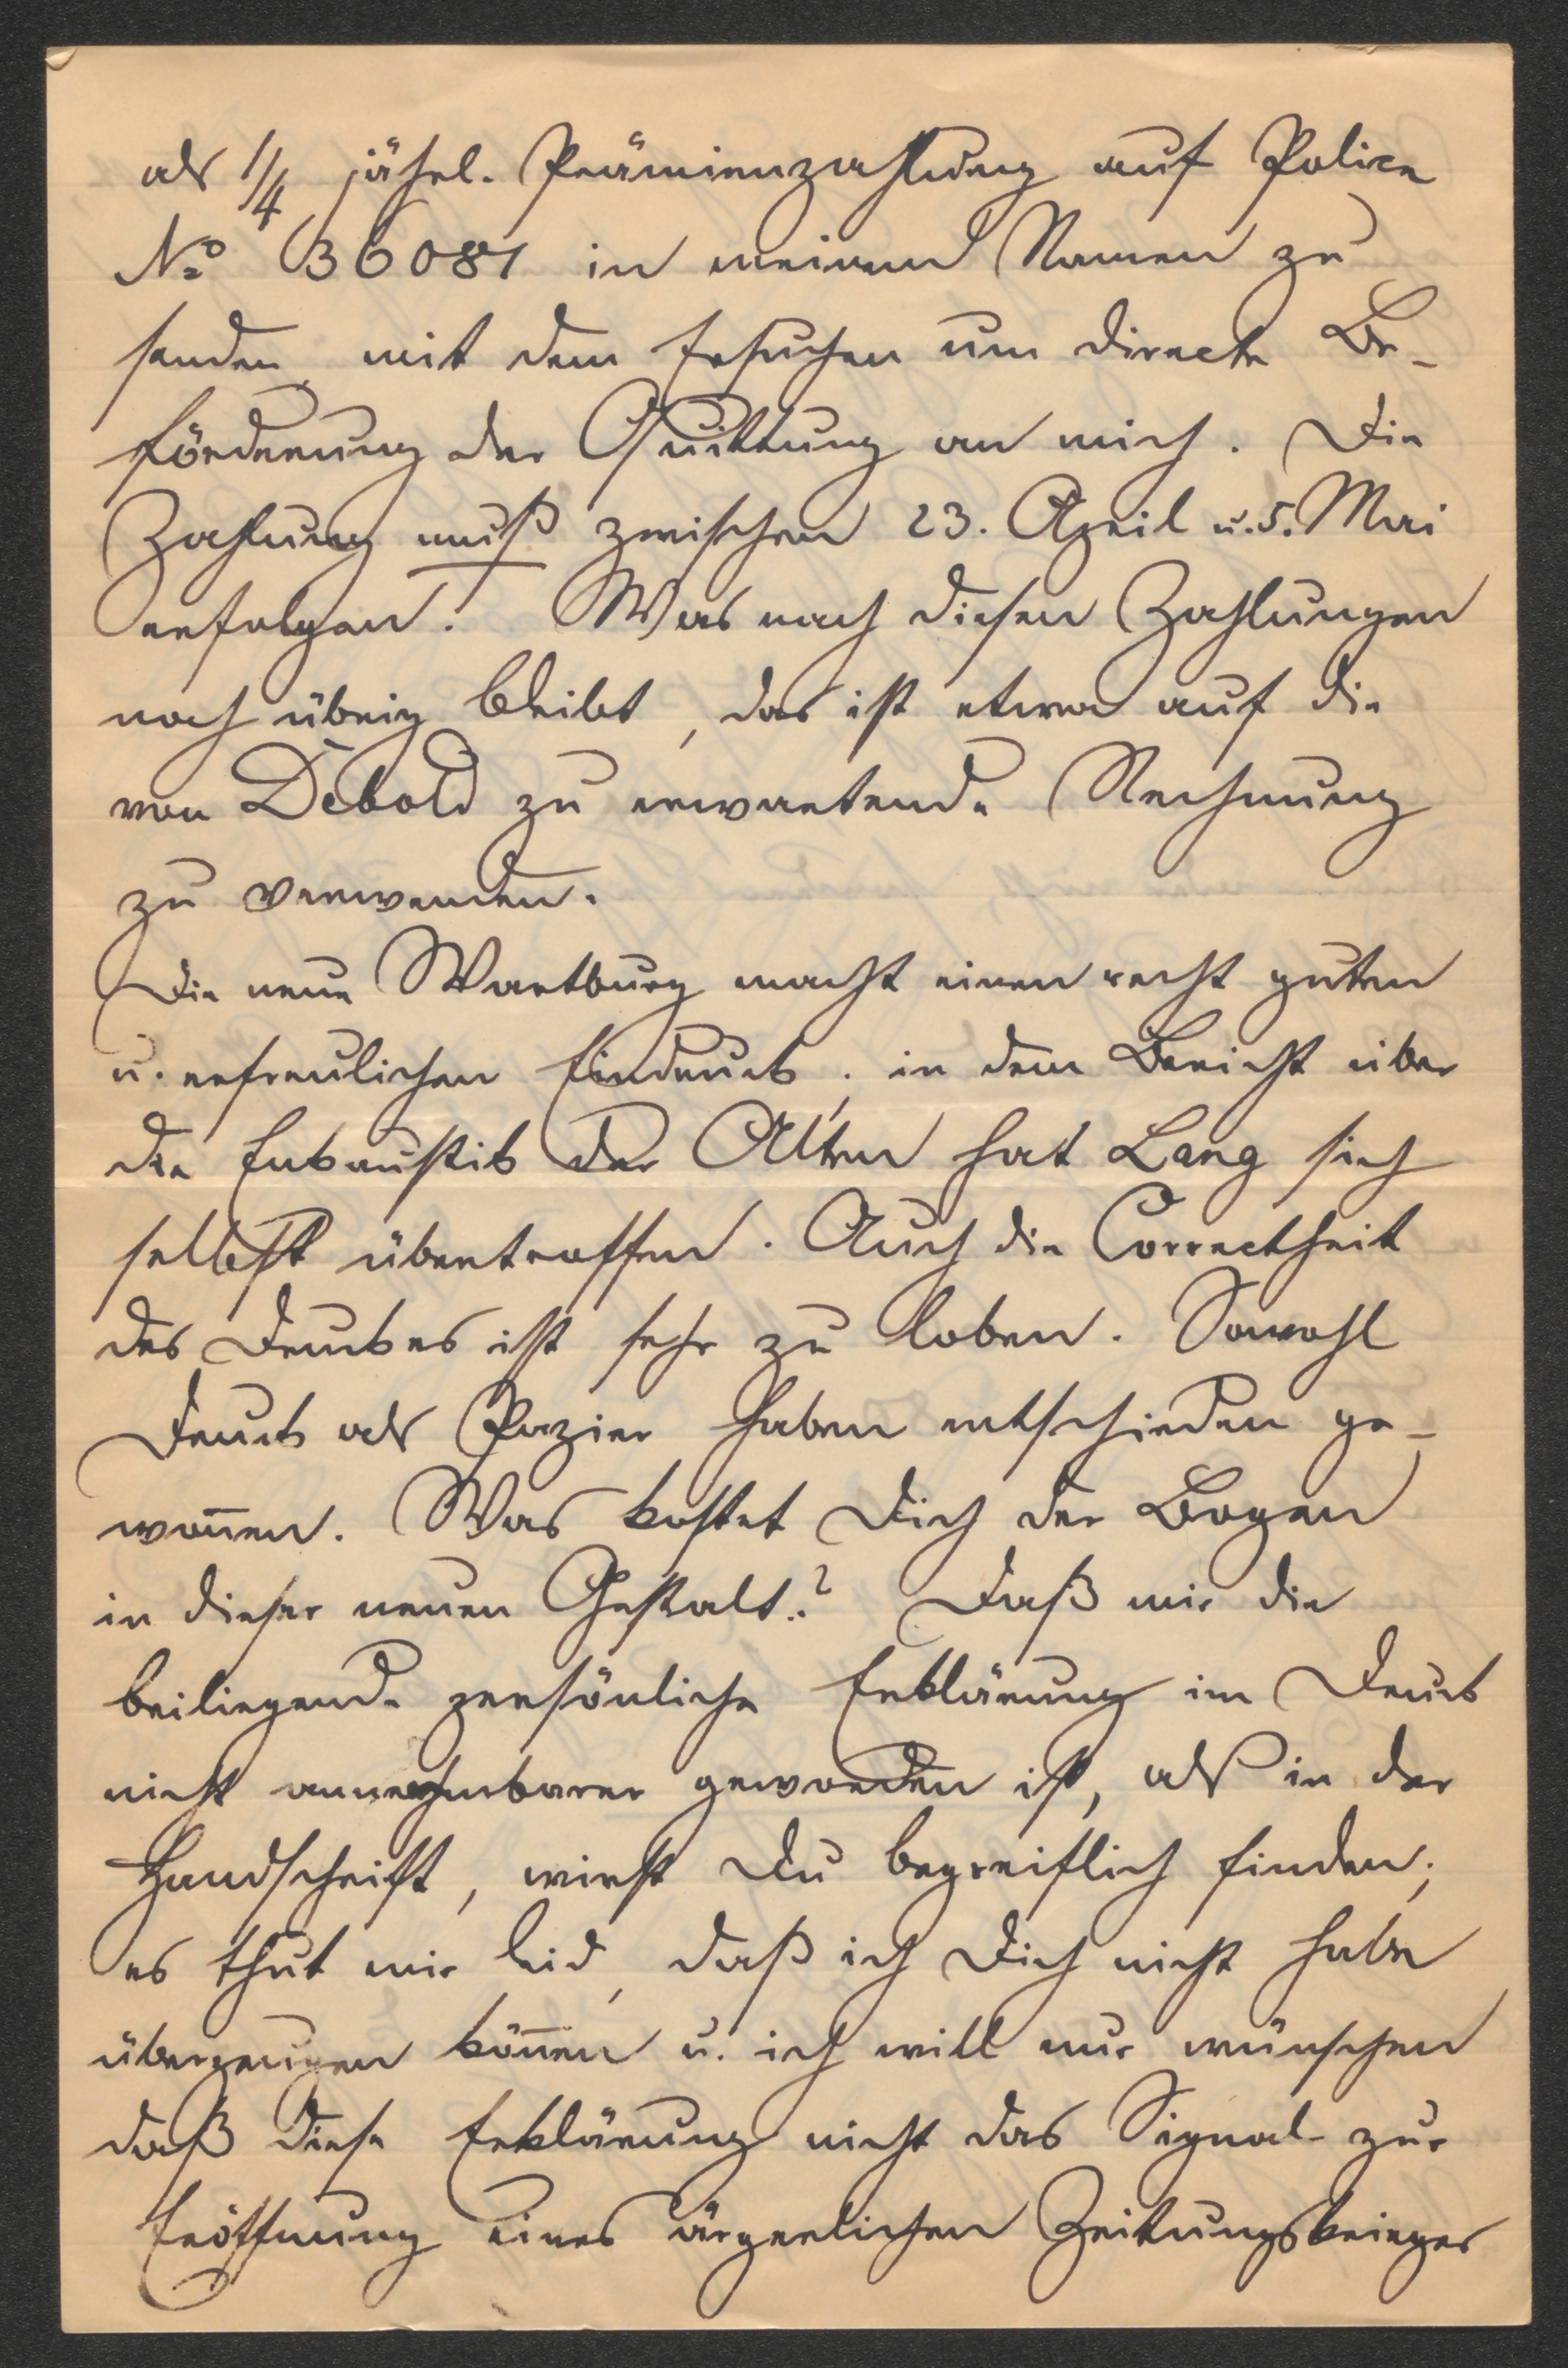 als 1/4 jährl. Prämienzahlung auf Police
No 36081 in meinem Namen zu
senden, mit dem Ersuchen um directe Be-
förderung der Quittung an mich. Die
Zahlung muß zwischen 23. April u. 5. Mai
erfolgen! Was nach diesen Zahlungen
noch übrig bleibt, das ist etwa auf die
von Debold zu erwartende Rechnung
zu verwenden.
Die neue Wartburg macht einen recht guten
u. erfreulichen Eindruck; in dem Bericht über
die Enkaustik der Alten hat Lang sich
selbst übertroffen. Auch die Correctheit
des Druckes ist sehr zu loben. Sowohl
Druck als Papier haben entschieden ge-
won̄en. Was kostet Dich der Bogen
in dieser neuen Gestalt? Daß mir die
beiliegende persönliche Erklärung im Druck
nicht annehmbarer geworden ist, als in der
Handschrift, wirst Du begreiflich finden;
es thut mir leid, daß ich Dich nicht habe
überzeugen kön̄en u. ich will nur wünschen
daß diese Erklärung nicht das Signal zur
Eröffnung eines ärgerlichen Zeitungskrieges